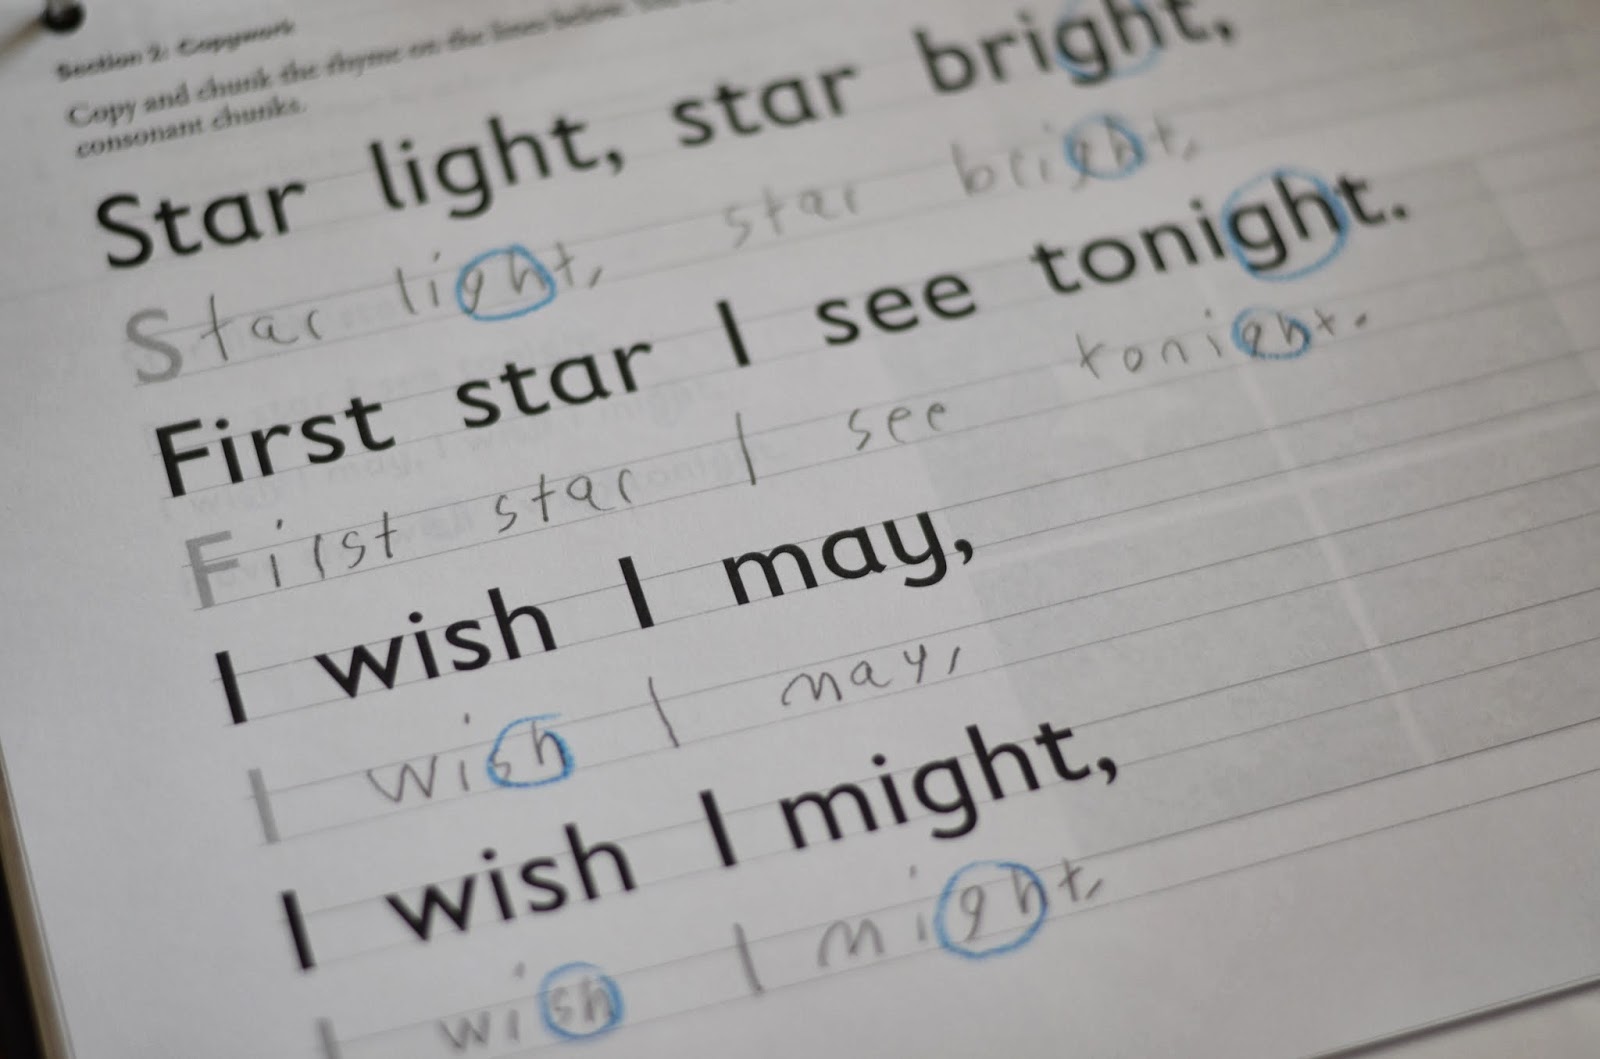 Section 2: Copywork
Copy and chunk the rhyme on the lines below.
consonant chunks.
Star light, star bright,
Star light, star bright,
First star I see tonight.
First star I see tonight.
I wish I may,
I wish I may,
I wish I might,
I wish I might,